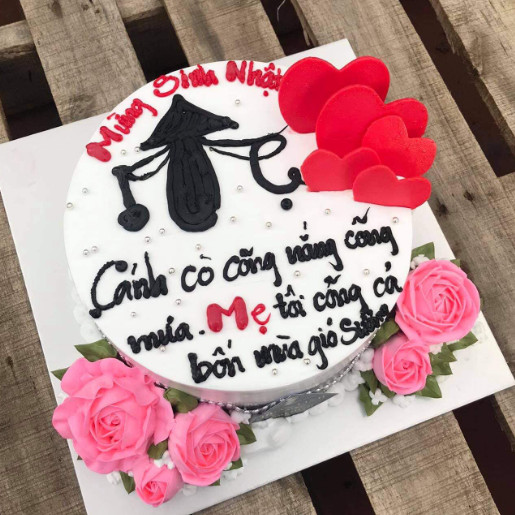 Mừng Sinh Nhật
Mẹ
Cánh cò cõng nắng cõng
mưa. Mẹ tôi cõng cả
bốn mùa gió sương